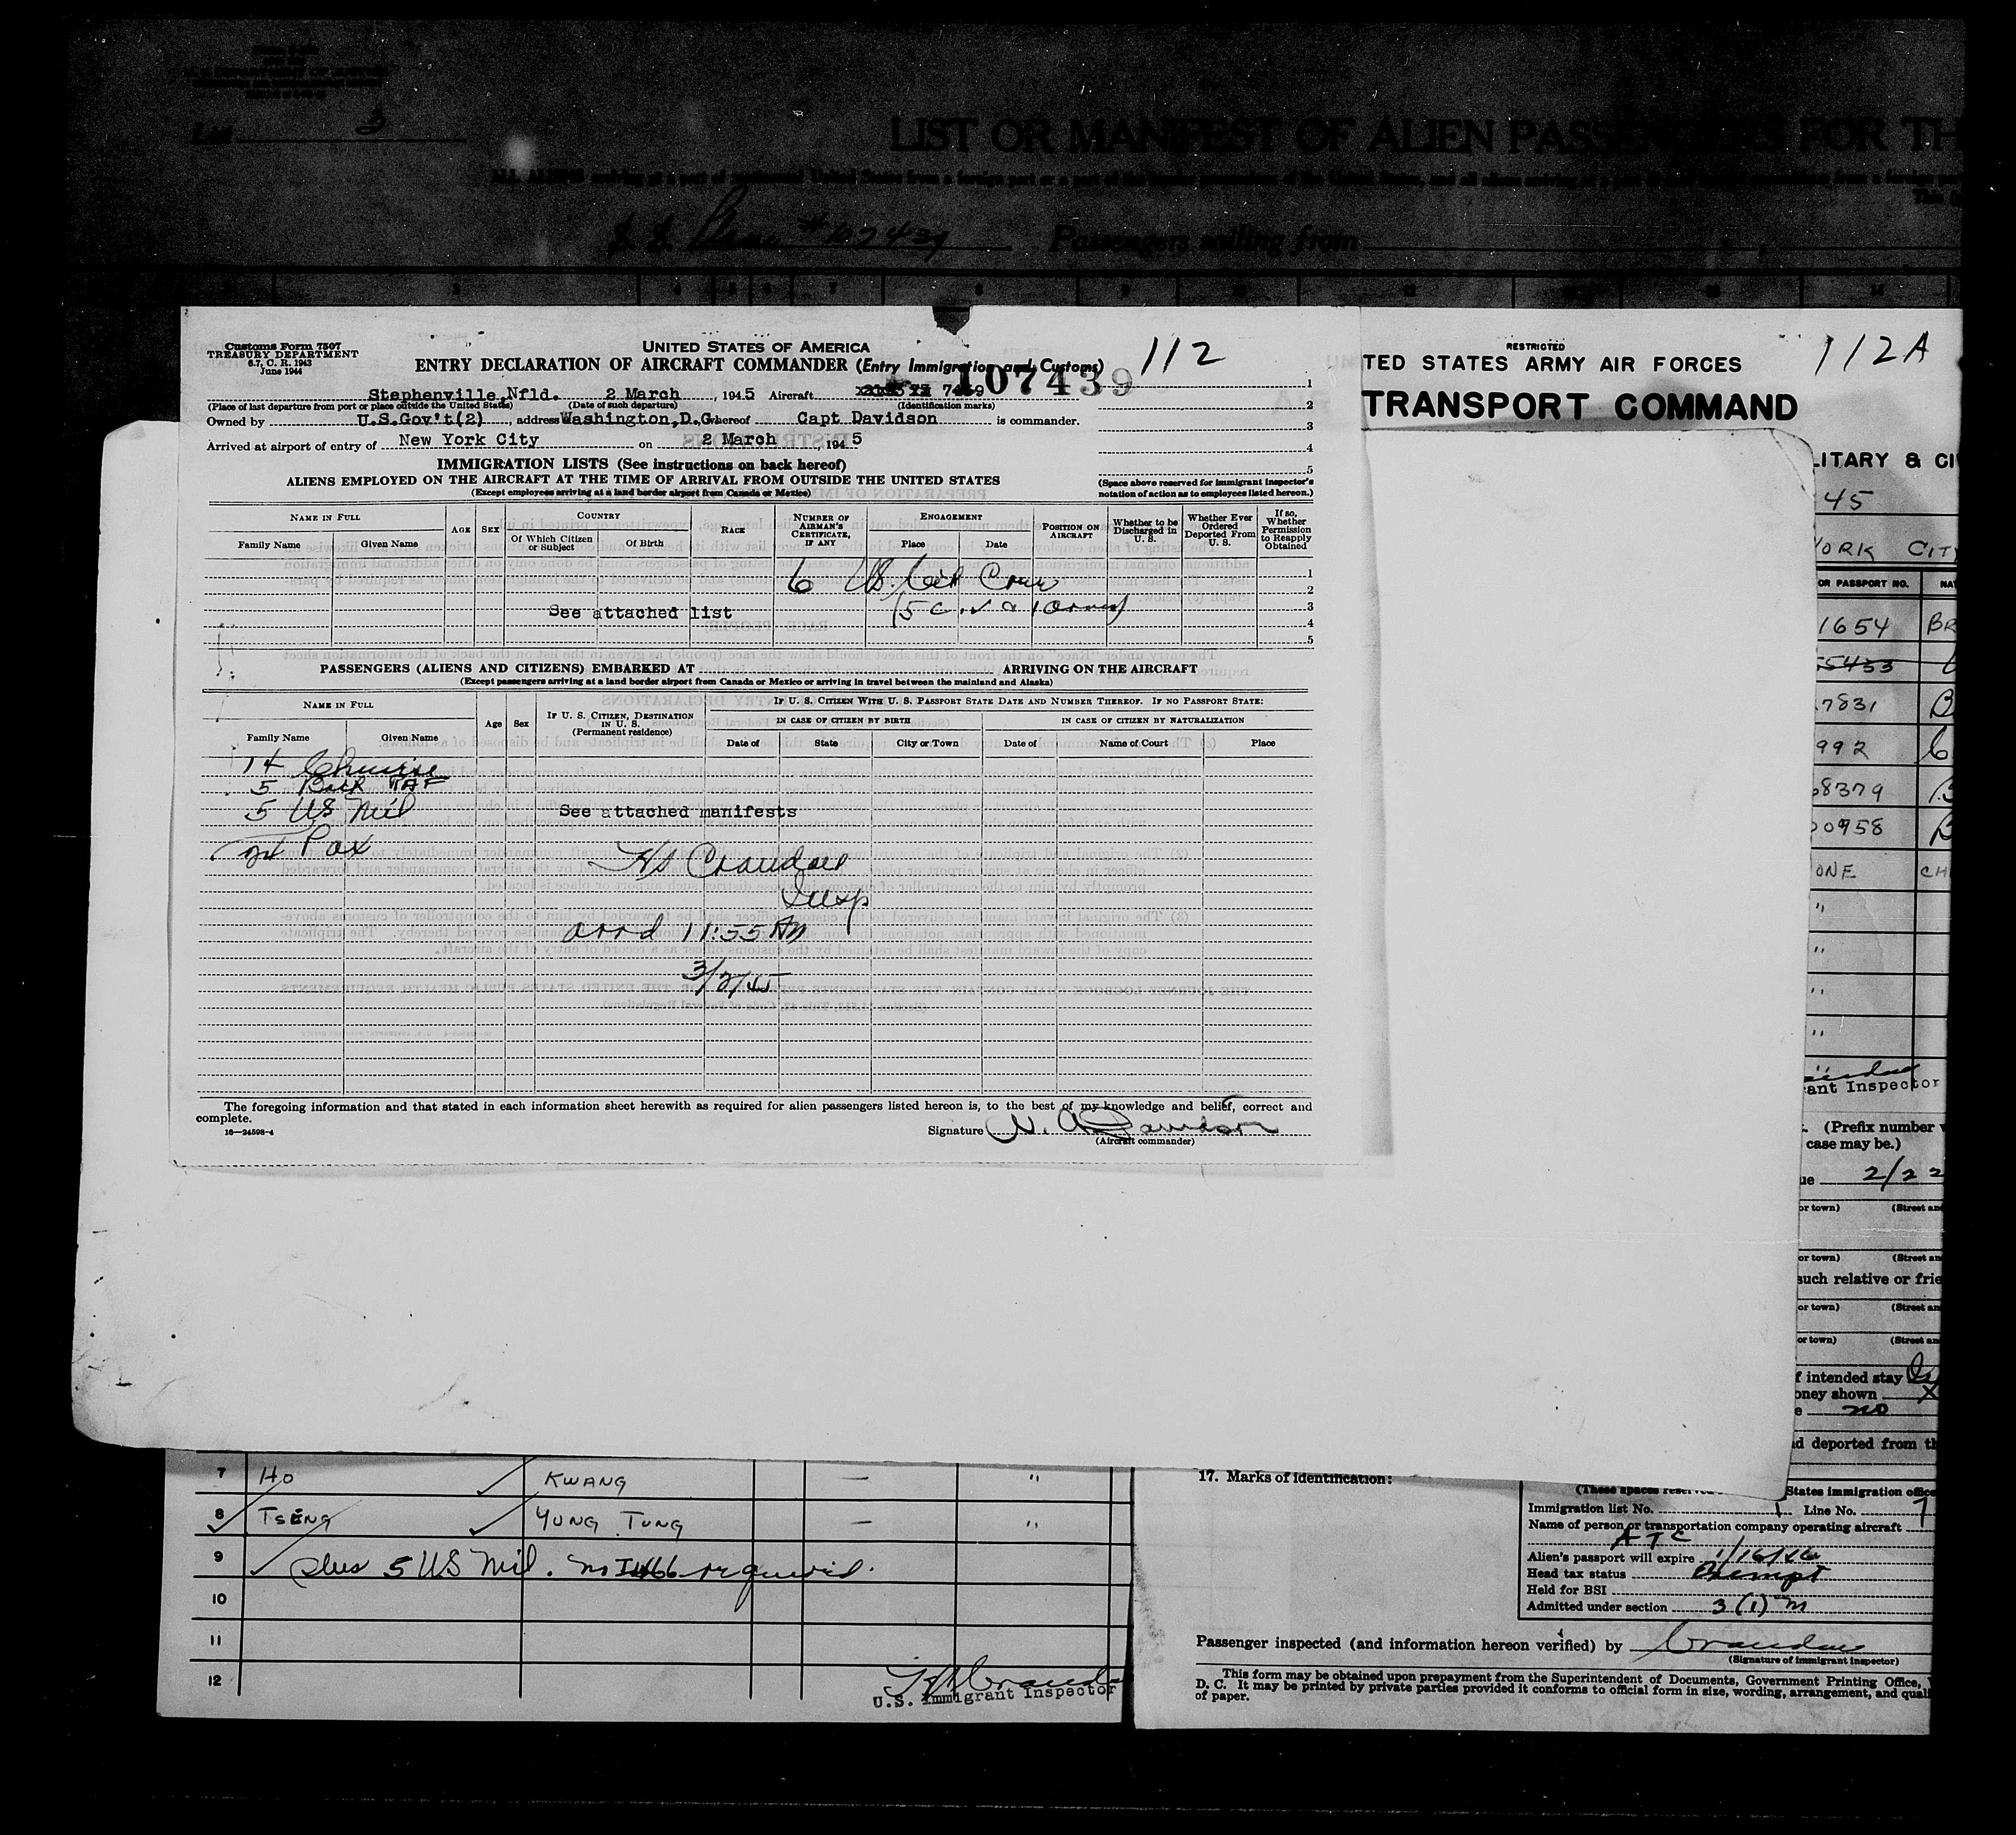 List 3
LIST OR MANIFEST OF ALIEN PASSENGERS FOR TH
# 107439 Passengers sailing from
Customs Form 7507
TREASURY DEPARTMENT
6.7, C. R. 1943
June 1944
UNITED STATES OF AMERICA
ENTRY DECLARATION OF AIRCRAFT COMMANDER (Entry Immigration and Customs)
112
107439
Stephenville,Nfld. 2 March , 1945 Aircraft 7439
(Place of last departure from port or place outside the United States) (Date of such departure) (Identification marks)
Owned by U.S.Gov't(2) , address Washington,D.C. whereof Capt Davidson is commander.
Arrived at airport of entry of New York City on 2 March , 1945
1
2
3
4
5
(Space above reserved for immigrant inspector's
notation of action as to employees listed hereon.)
IMMIGRATION LISTS (See instructions on back hereof)
ALIENS EMPLOYED ON THE AIRCRAFT AT THE TIME OF ARRIVAL FROM OUTSIDE THE UNITED STATES
(Except employees arriving at a land border airport from Canada or Mexico)
NAME IN FULL
Family Name Given Name
AGE SEX
COUNTRY
Of Which Citizen or Subject Of Birth
RACE
NUMBER OF AIRMAN'S CERTIFICATE, IF ANY
ENGAGEMENT
Place Date
POSITION ON AIRCRAFT
Whether to be Discharged in U. S.
Whether Ever Ordered Deported From U. S.
If so, Whether Permission to Reapply Obtained
6 US. Cit Crew
See attached list
1
2
3
4
5
PASSENGERS (ALIENS AND CITIZENS) EMBARKED AT ARRIVING ON THE AIRCRAFT
(Except passengers arriving at a land border airport from Canada or Mexico or arriving in travel between the mainland and Alaska)
NAME IN FULL
Family Name Given Name
Age Sex
IF U. S. CITIZEN, DESTINATION IN U. S.
(Permanent residence)
IF U. S. CITIZEN WITH U. S. PASSPORT STATE DATE AND NUMBER THEREOF. IF NO PASSPORT STATE:
IN CASE OF CITIZEN BY BIRTH IN CASE OF CITIZEN BY NATURALIZATION
Date of State City or Town Date of Name of Court Place
14 Chinese
5 RAF
5 US Mil
See attached manifests
24 Pax
Crandall
Insp
arrd 11:55 AM
3/2/45
The foregoing information and that stated in each information sheet herewith as required for alien passengers listed hereon is, to the best of my knowledge and belief, correct and
complete.
16—24598-4
Signature N. A. Davidson
(Aircraft commander)
RESTRICTED
112A
TED STATES ARMY AIR FORCES
TRANSPORT COMMAND
LITARY & CI
45
YORK CITY
OR PASSPORT NO. NAT
1654 BR
55453
7831 B
992
68379 B
00958 B
ONE CH
"
"
"
"
ant Inspector
. (Prefix number
case may be.)
ue 2/22
or town) (Street an
or town) (Street an
such relative or frie
or town) (Street an
or town) (Street an
f intended stay
oney shown X
e no
d deported from th
7 HO KWANG — "
8 TSENG YUNG TUNG — "
9 plus 5 US Mil. no I466 required.
10
11
12
U.S. Immigrant Inspector
17. Marks of identification:
States immigration office
Immigration list No. 1 Line No. 7
Name of person or transportation company operating aircraft
ATC
Alien's passport will expire 1/16/46
Head tax status Exempt
Held for BSI
Admitted under section 3 (1) m
Passenger inspected (and information hereon verified) by Crandall
(Signature of immigrant inspector)
This form may be obtained upon prepayment from the Superintendent of Documents, Government Printing Office,
D. C. It may be printed by private parties provided it conforms to official form in size, wording, arrangement, and quali
of paper.